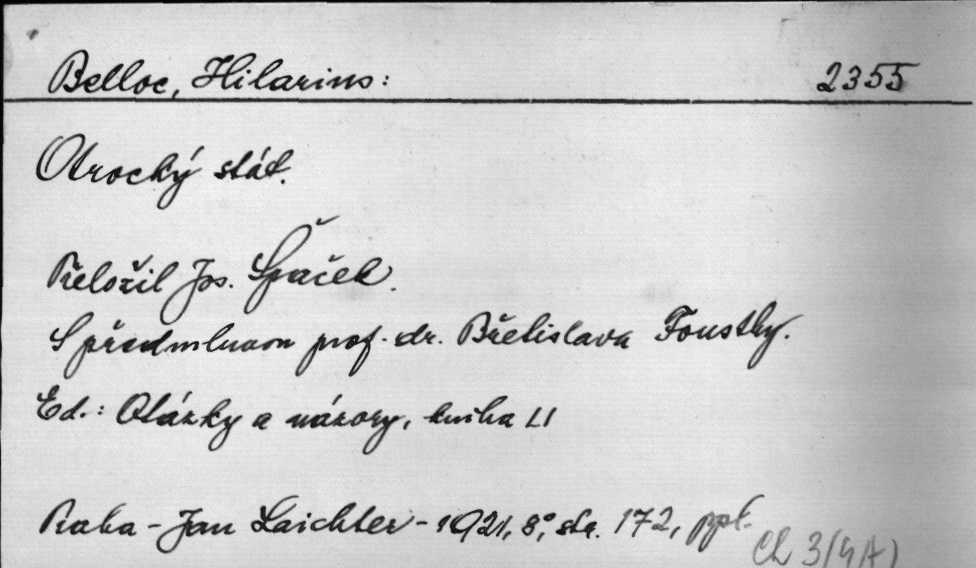 Belloc, Hilarius: 2355
Otrocký stát.
Přeložil Jos. Špaček.
S předmluvou prof. dr. Břetislava Foustky.
Ed.: Otázky a názory, kniha LI
Praha - Jan Laichter - 1921, 8°, str. 172, ppt.